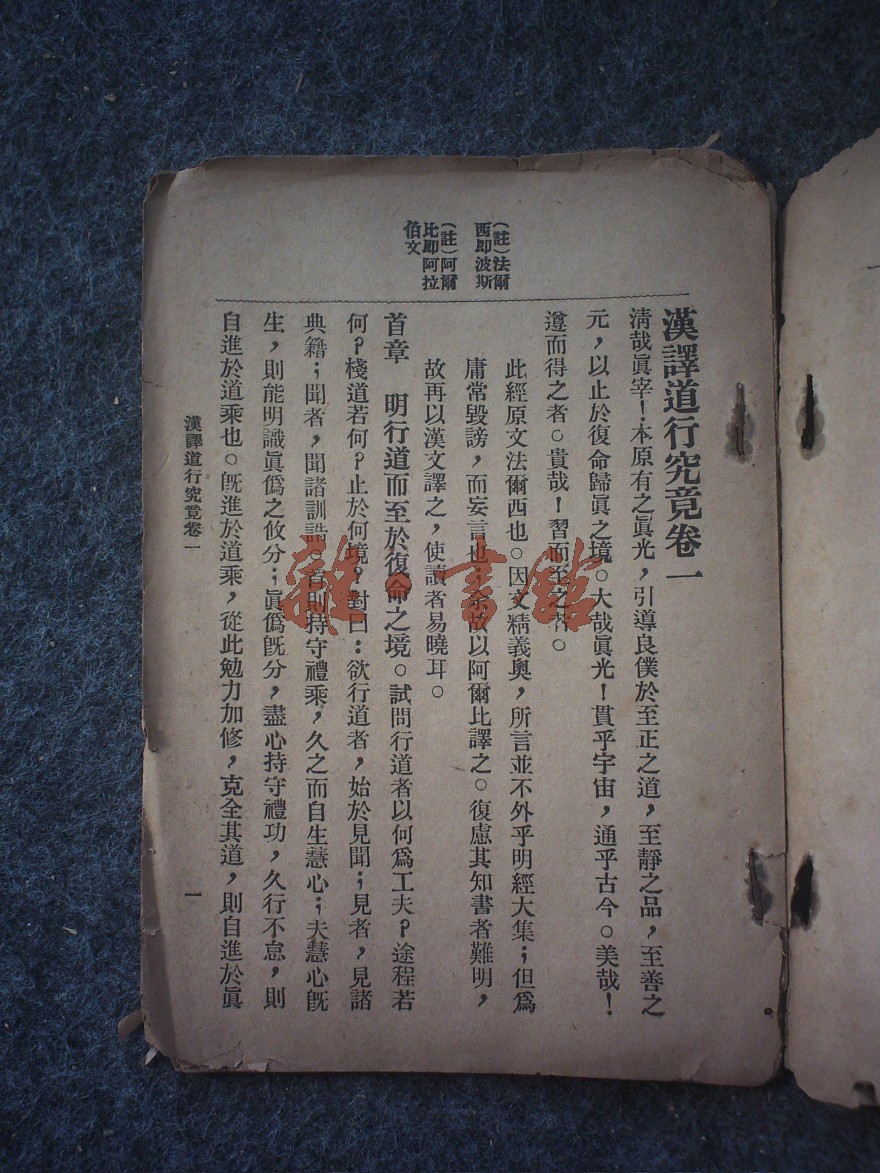 漢譯道行究竟卷一
清哉眞宰！本原有之眞光，引導良僕於至正之道，至靜之品，至善之
元，以止於復命歸眞之境。大哉眞光！貫乎宇宙，通乎古今。美哉！
遵而得之者。貴哉！習而至之者。
此經原文法爾西也。因文精義奧，所言並不外乎明經大集；但爲
庸常毀謗，而妄言也；余故以阿爾比譯之。復慮其知書者難明，
故再以漢文譯之，使讀者易曉耳。
首章　明行道而至於復命之境。試問行道者以何爲工夫？途程若
何？棧道若何？止於何境？對曰：欲行道者，始於見聞；見者，見諸
典籍；聞者，聞諸訓誥。首則持守禮乘，久之而自生慧心；夫慧心旣
生，則能明識眞僞之攸分；眞僞旣分，盡心持守禮功，久行不怠，則
自進於道乘也。旣進於道乘，從此勉力加修，克全其道，則自進於眞
（註）法爾
西即波斯
（註）阿爾
比即阿拉
伯文
漢譯道行究竟卷一
一
雜·書館